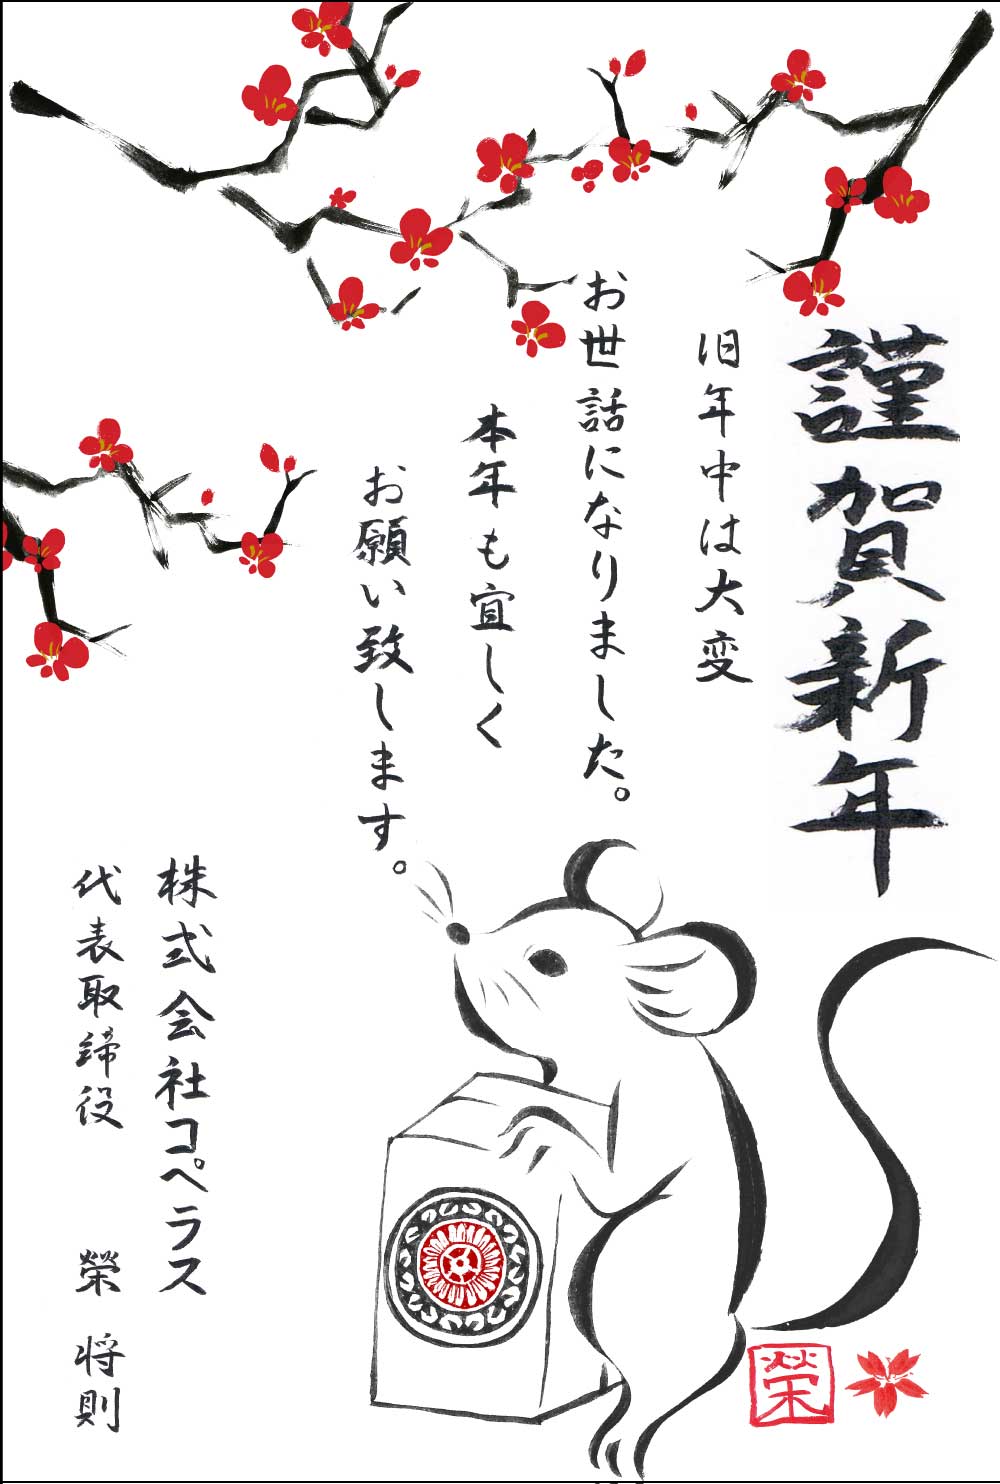 謹賀新年
旧年中は大変
お世話になりました。
本年も宜しく
お願い致します。
株式会社コペラス
代表取締役 榮 将則
榮